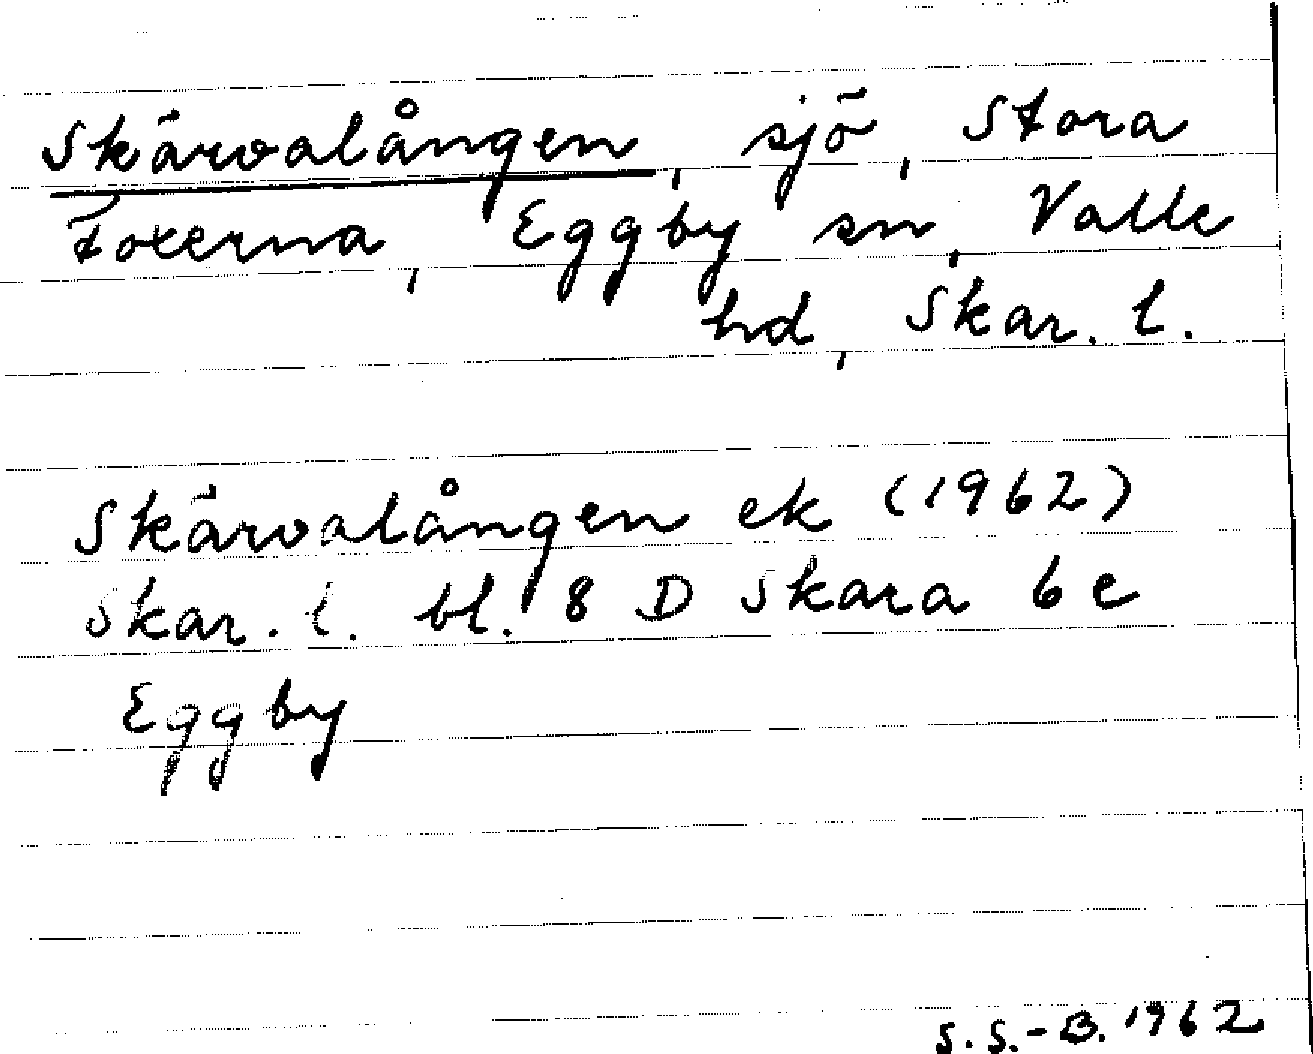 Skärvalången, sjö, Stora
Foxerna, Eggby sn, Valle
hd, Skar. l.
Skärvalången ek (1962)
Skar. l. bl. 8 D Skara 6 e
Eggby
S. S.-B. 1962